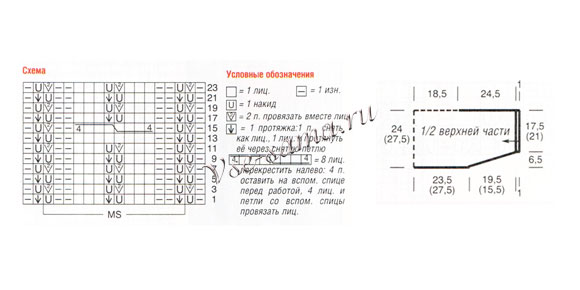 Схема
23
21
19
17
15
13
11
9
7
5
3
1
4 4
MS
Условные обозначения
= 1 лиц. = 1 изн.
U = 1 накид
= 2 п. провязать вместе лиц.
= 1 протяжка: 1 п.
как лиц., 1 лиц.
её через снятую петлю
4 4 = 8 лиц.
перекрестить налево: 4 п.
оставить на вспом. спице
перед работой, 4 лиц. и
петли со вспом. спицы
провязать лиц.
18,5 24,5 1
24
(27,5)
1/2 верхней части
17,5
(21)
6,5
23,5
(27,5)
19,5
(15,5)
1